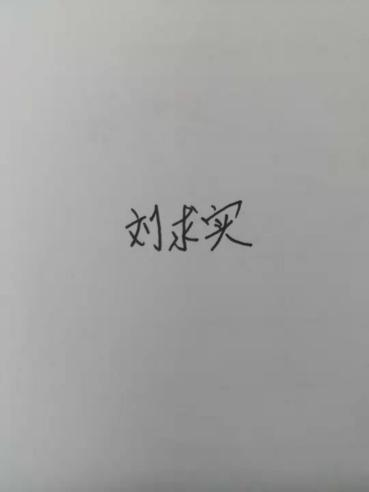 刘求实